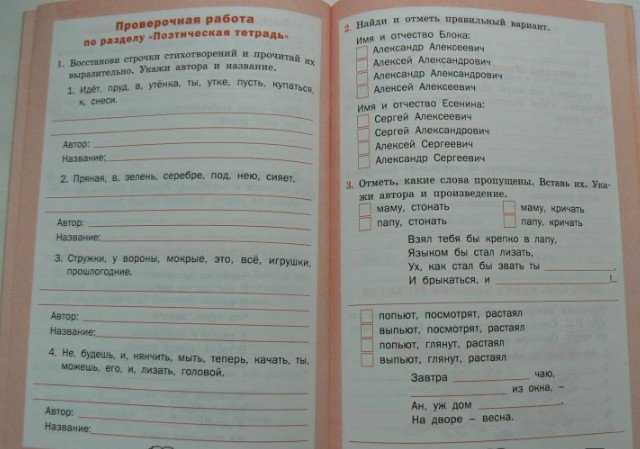 Проверочная работа
по разделу «Поэтическая тетрадь»
1. Восстанови строчки стихотворений и прочитай их
выразительно. Укажи автора и название.
1. Идёт, пруд, в, утёнка, ты, утке, пусть, купаться,
к, снеси.
Автор:
Название:
2. Пряная, в, зелень, серебре, под, нею, сияет.
Автор:
Название:
3. Стружки, у вороны, мокрые, это, всё, игрушки,
прошлогодние.
Автор:
Название:
4. Не, будешь, и, нянчить, мыть, теперь, качать, ты,
можешь, его, и, лизать, головой.
Автор:
Название:
2. Найди и отметь правильный вариант.
Имя и отчество Блока:
Александр Алексеевич
Алексей Александрович
Александр Александрович
Алексей Алексеевич
Имя и отчество Есенина:
Сергей Алексеевич
Сергей Александрович
Алексей Сергеевич
Александр Сергеевич
3. Отметь, какие слова пропущены. Вставь их. Ука-
жи автора и произведение.
маму, стонать маму, кричать
папу, стонать папу, кричать
Взял тебя бы крепко в лапу,
Языком бы стал лизать,
Ух, как стал бы звать ты
И брыкаться, и !
попьют, посмотрят, растаял
выпьют, посмотрят, растаял
попьют, глянут, растаял
выпьют, глянут, растаял
Завтра чаю,
из окна, –
Ан, уж дом
На дворе – весна.